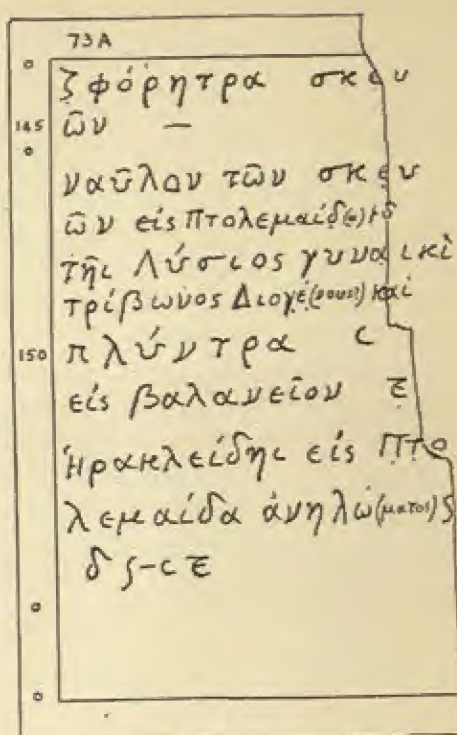 73A
ζ φόρητρα σκευ
145 ῶν —
ναῦλον τῶν σκευ
ῶν εἰς Πτολεμαίδ(α)
τῆι Λύσιος γυναικὶ
τρίβωνος Διογέ(νους) καὶ
150 πλύντρα c
εἰς βαλανεῖον ε̅
Ἡρακλείδηι εἰς Πτο
λεμαίδα ἀνηλώ(ματος) ς
δ ʃ-c ε̅